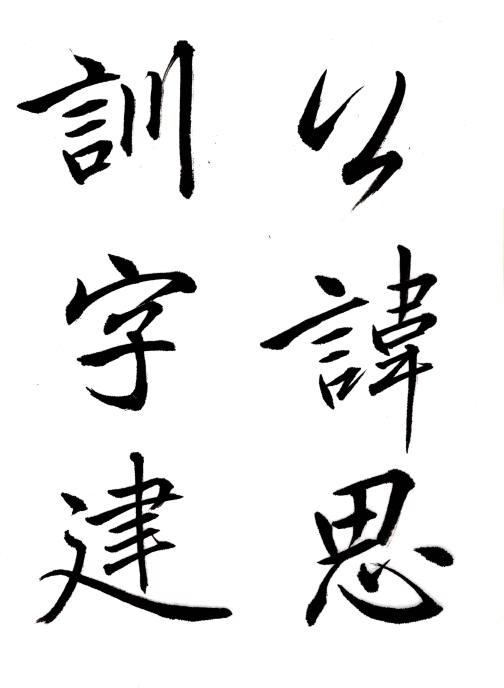 公諱思
訓字建